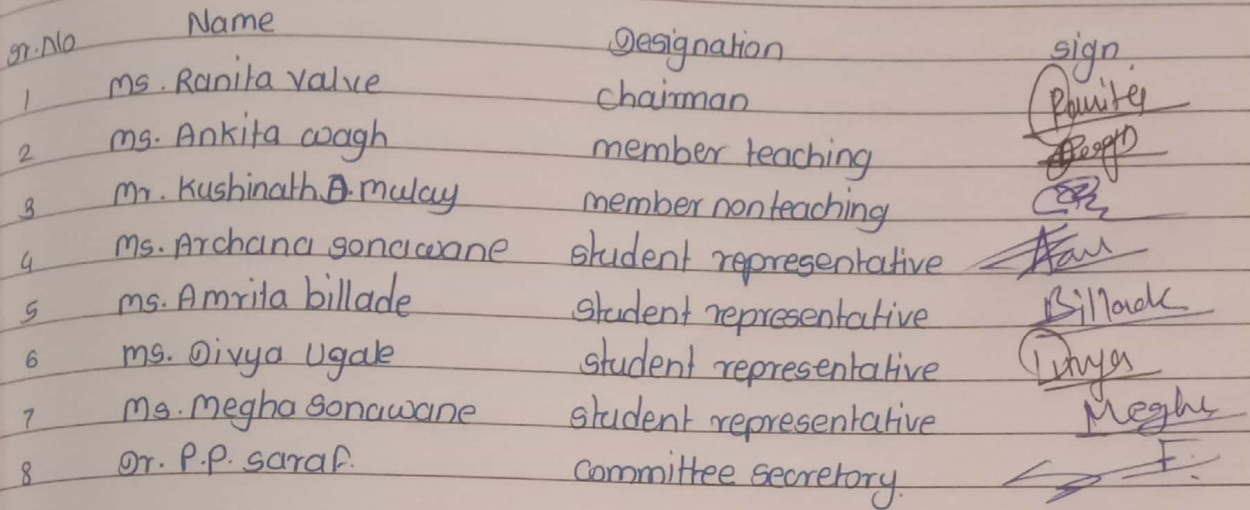 Sr.No Name Designation sign.
1 Ms. Ranita Valve chairman Ranita
2 Ms. Ankita wagh member teaching
3 Mr. Kushinath.D.mulay member nonteaching
4 Ms. Archana sonawane student representative
5 Ms. Amrita billade student representative Billade
6 Ms. Divya Ugale student representative Divya
7 Ms. Megha Sonawane student representative Megha
8 Dr. P.P. Saraf. committee secretory.